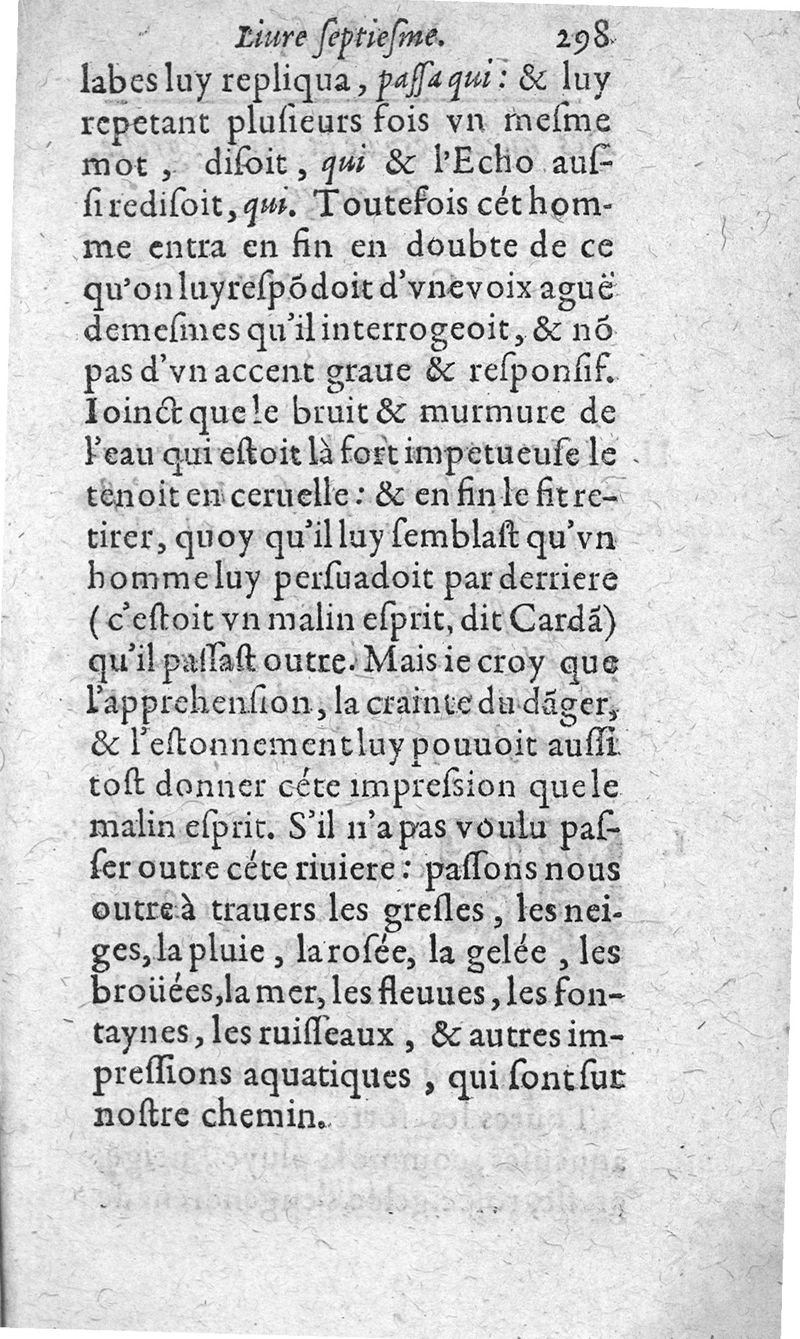 Liure ſeptieſme. 298
labes luy repliqua, paſſa qui: & luy
repetant pluſieurs fois vn meſme
mot, diſoit, qui & l'Echo auſ-
ſi rediſoit, qui. Toutefois cét hom-
me entra en fin en doubte de ce
qu'on luy reſpõdoit d'vne voix aguë
de meſmes qu'il interrogeoit, & nõ
pas d'vn accent graue & reſponſif.
Ioinct que le bruit & murmure de
l'eau qui eſtoit là fort impetueuſe le
tenoit en ceruelle: & en fin le fit re-
tirer, quoy qu'il luy ſemblaſt qu'vn
homme luy perſuadoit par derriere
(c'eſtoit vn malin eſprit, dit Cardã)
qu'il paſſaſt outre. Mais ie croy que
l'apprehenſion, la crainte du dãger,
& l'eſtonnement luy pouuoit auſſi
toſt donner céte impreſsion que le
malin eſprit. S'il n'a pas voulu paſ-
ſer outre céte riuiere: paſſons nous
outre à trauers les greſles, les nei-
ges, la pluie, la roſée, la gelée, les
broüées, la mer, les fleuues, les fon-
taynes, les ruiſſeaux, & autres im-
preſſions aquatiques, qui ſont ſur
noſtre chemin.